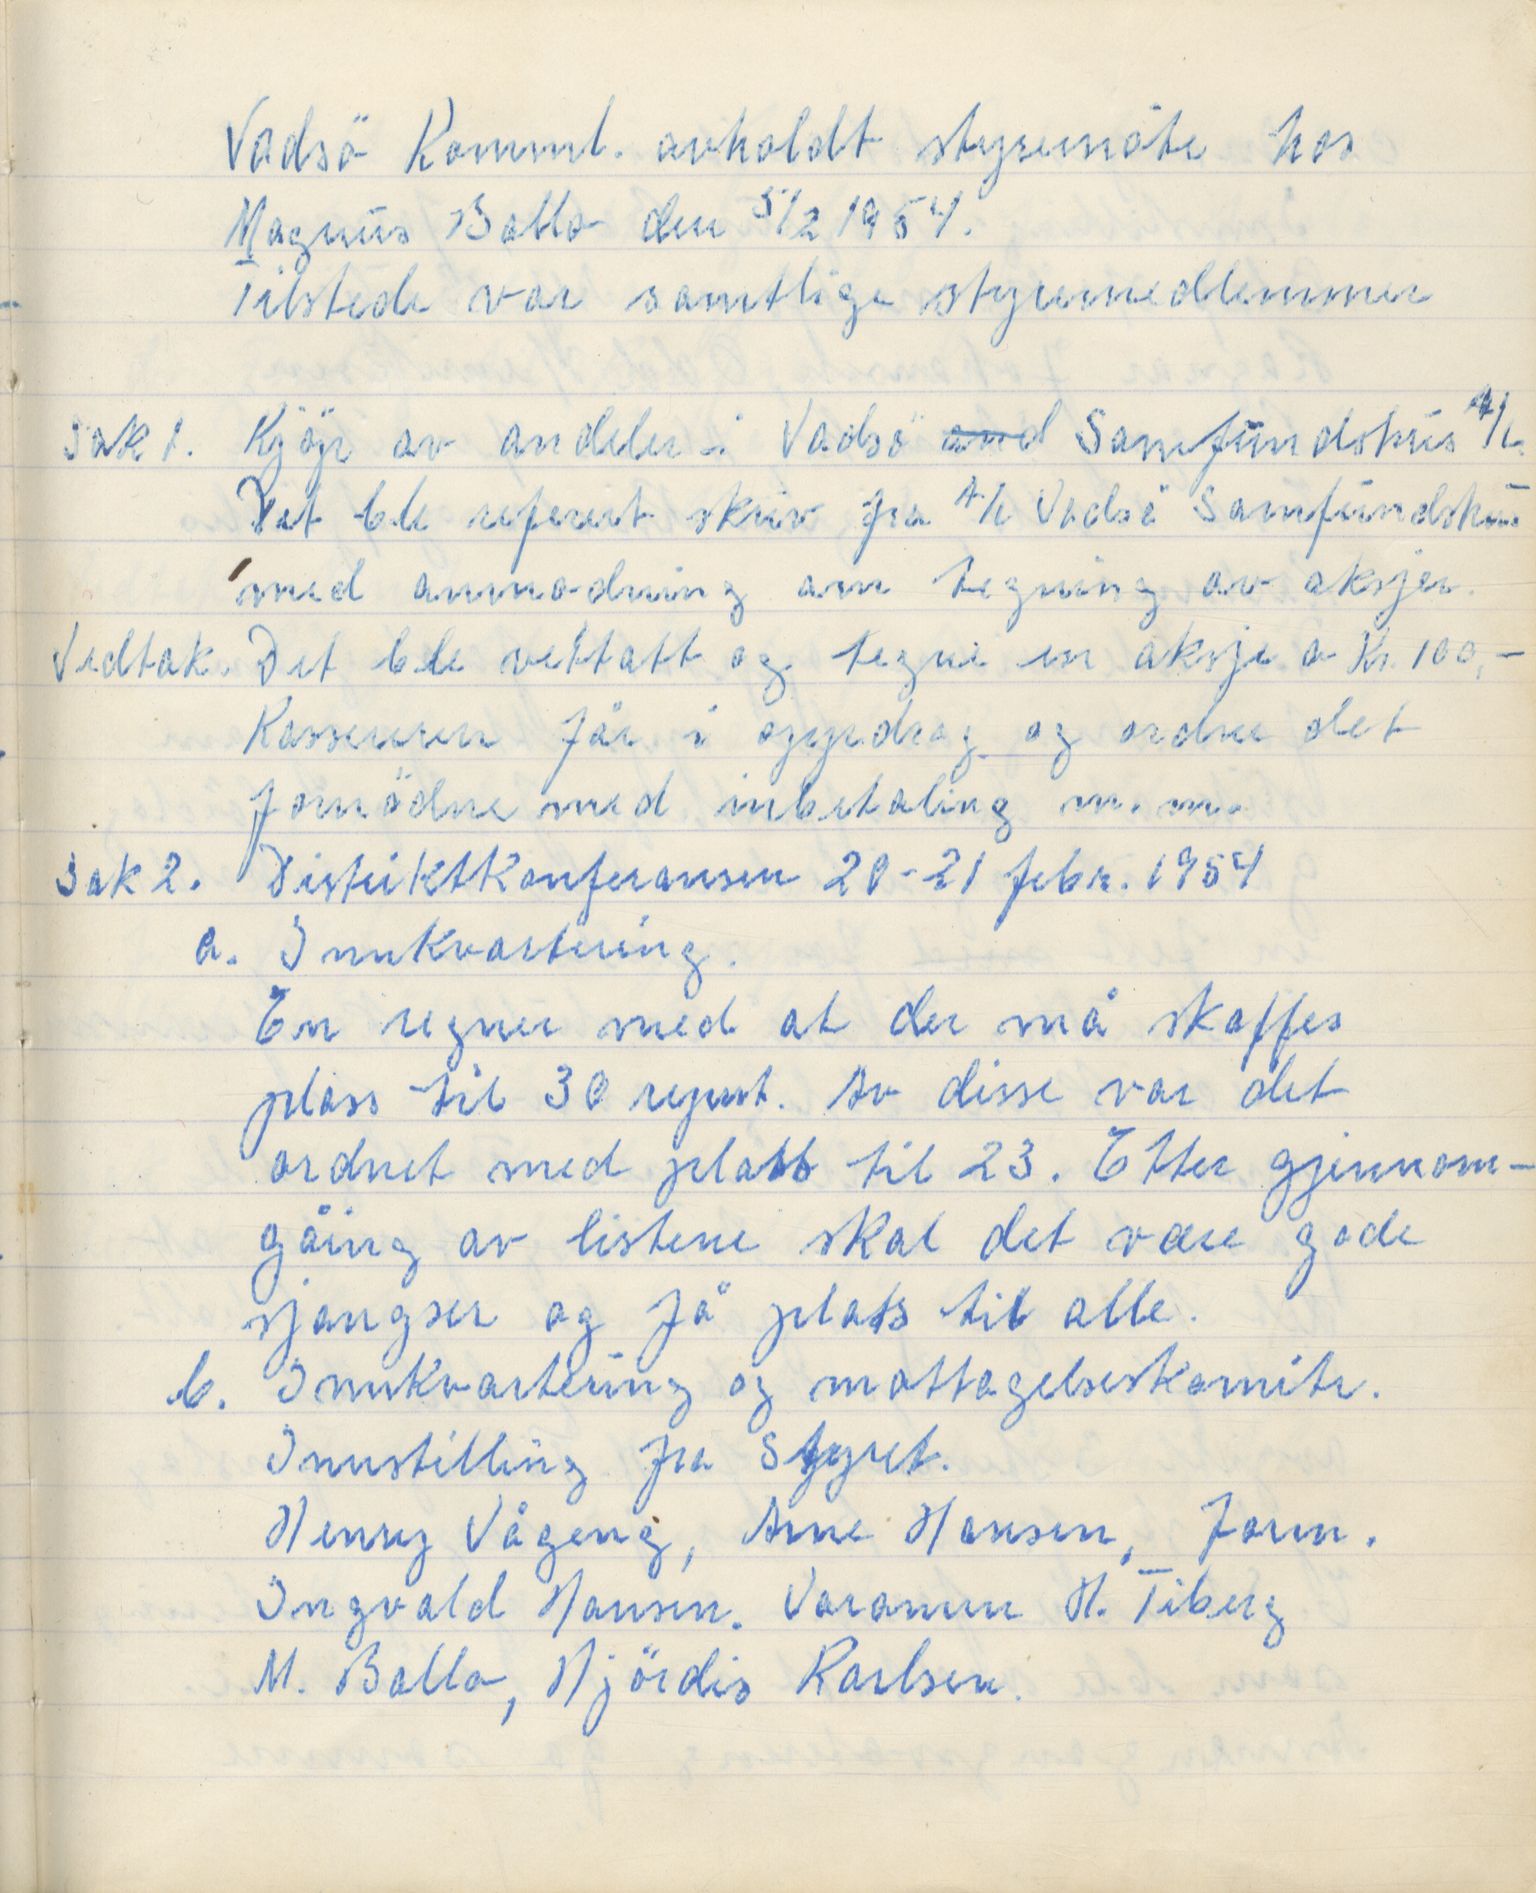 Vadsö Komml. avholdt styremöte hos
Magnus Balla den 5/2 1954.
Tilstede var samtlige styremedlemmer
Sak 1. Kjöp av andeler i Vadsö and Samfundshus A/L
Det ble referert skriv fra A/L Vadsö Samfundshus
med anmodning om tegning av aksjer.
Vedtak. Det ble vettatt og tegne en aksje a Kr. 100,-
Kassereren får i oppdrag og ordne det
fornödne med inbetaling m.m.
Sak 2. Distriktkonferansen 20-21 febr. 1954
a. Innkvartering.
En regner med at der må skaffes
plass til 30 reprst. Av disse var det
ordnet med plass til 23. Etter gjennom-
gåing av listene skal det være gode
sjangser og få plass til alle.
b. Innkvartering og mottagelseskomite.
Innstilling fra Styret.
Henry Vågeng, Arne Hansen, Form.
Ingvald Hansen. Varamenn H. Tiberg
M. Balla, Hjördis Karlsen.